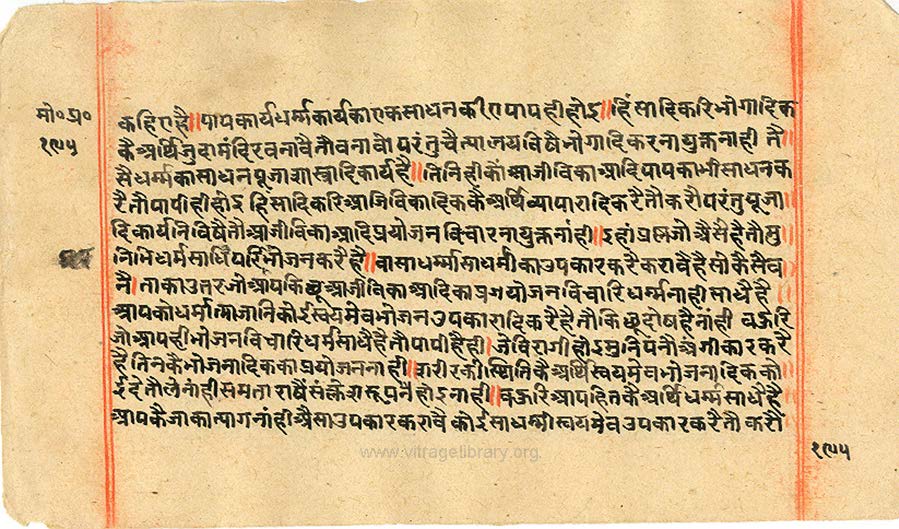 मो॰ प्र॰
१९५
कहिए है॥ पापकार्य धर्म्मकार्य का एक साधन कीए पाप ही होइ॥ हिंसादिकरि भोगादिक
कै अर्थि जुदा मंदिर बनावै तौ बनावो परंतु चैत्यालय विषै भोगादि करना युक्त नाही तै
सै धर्म्म का साधन पूजा शास्त्रादि कार्य है॥ तिनिही कौं आजीविका आदि पाप का भी साधन क
रै तौ पापी ही होइ हिंसादिकरि आजिविकादिक कै अर्थि व्यापारादि करै तौ करौ परंतु पूजा
दि कार्यनि विषै तौ आजीविका आदि प्रयोजन विचारना युक्त नांही॥ इहां प्रश्न जो अैसै है तौ मु
नि भि धर्मसाधि परि भोजन करै है॥ वा साधर्म्मी साधर्मी का उपकार करै करावै है सो कैसै ब
नै॥ ताका उतर जो आप किछू आजीविका आदि का प्रयोजन विचारि धर्म्म नाही साधै है
आपको धर्मात्मा जानि कोई स्वयमेव भोजन उपकारादि करै है तौ किछू दोष है नांही बऊरि
जो आपही भोजन विचारी धर्म साधै है तौ पापी है ही। जे विरागी होइ मुनिपनौ अंगीकार करै
है तिनकै भोजनादिक का प्रयोजन नाही॥ शरीर की स्थिति कै अर्थि स्वयमेव भोजनादिक को
ई दे तौ ले नांही समता राषै संक्लेशरूप होइ नाही॥ बऊरि आप हित कै अर्थि धर्म्म साधै है
आपकै जाका त्याग नांही अैसा उपकार करावै कोई साधर्म्मी स्वयमेव उपकार करै तौ करौ
१९५
www.vitragelibrary.org